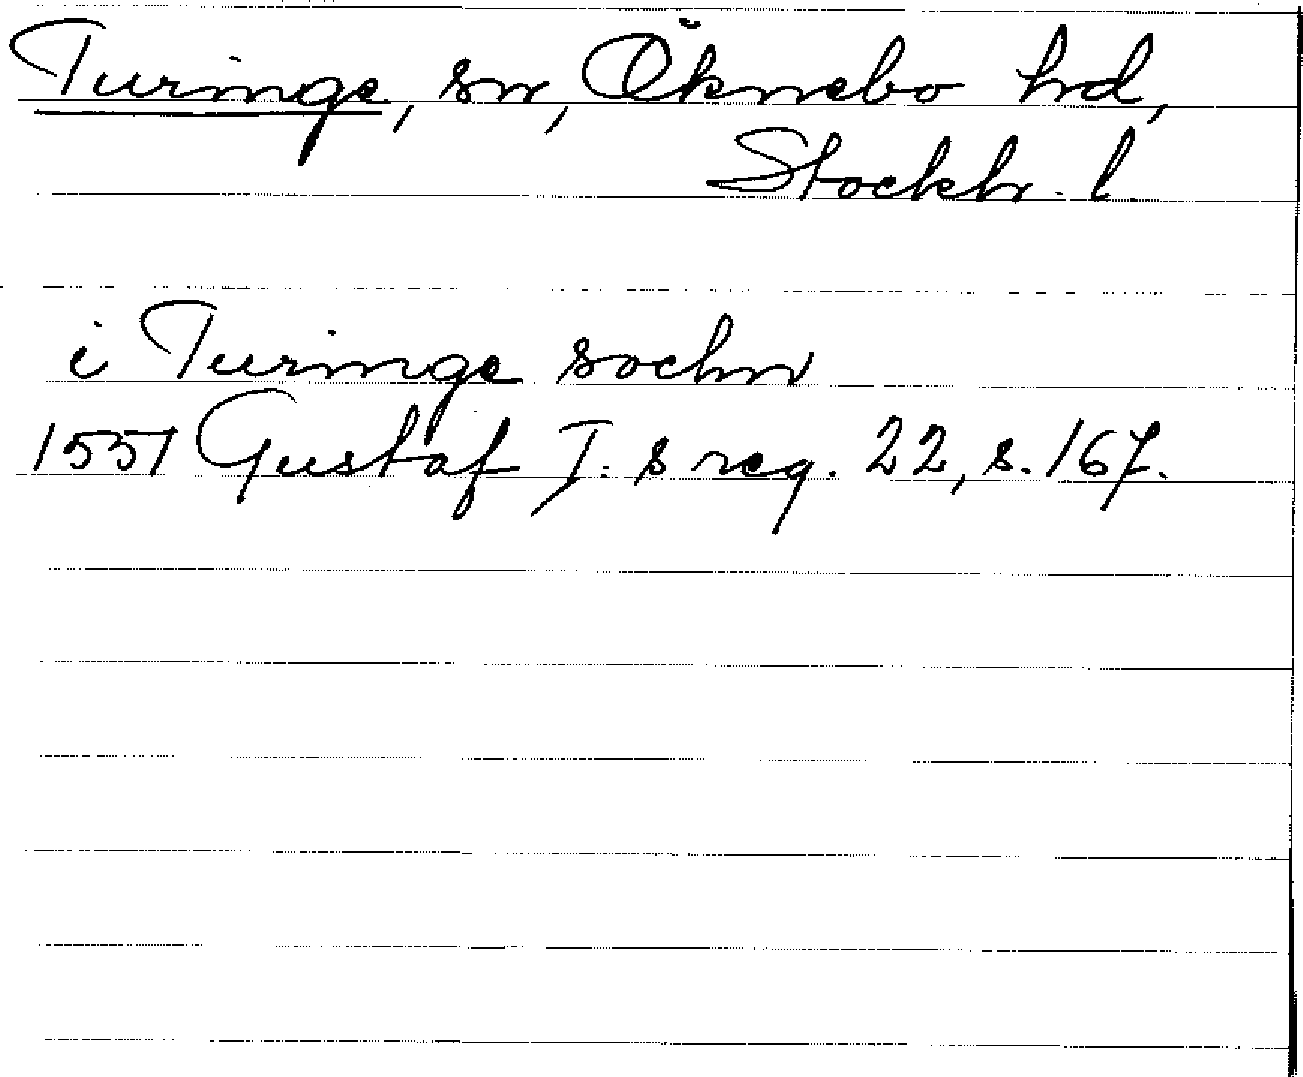 Turinge, sn, Öknebo hd,
Stockh. l.
i Turinge sochn
1551 Gustaf I:s reg. 22, s. 167.